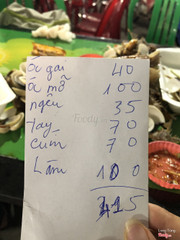 ốc gai 40
ốc mỡ 100
nghêu 35
Tay 70
cúm 70
Lãm 100
415